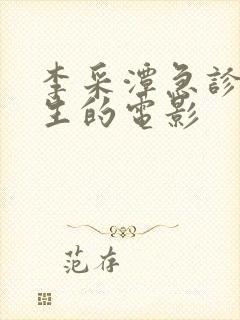 李采潭急診
生的電影
范存